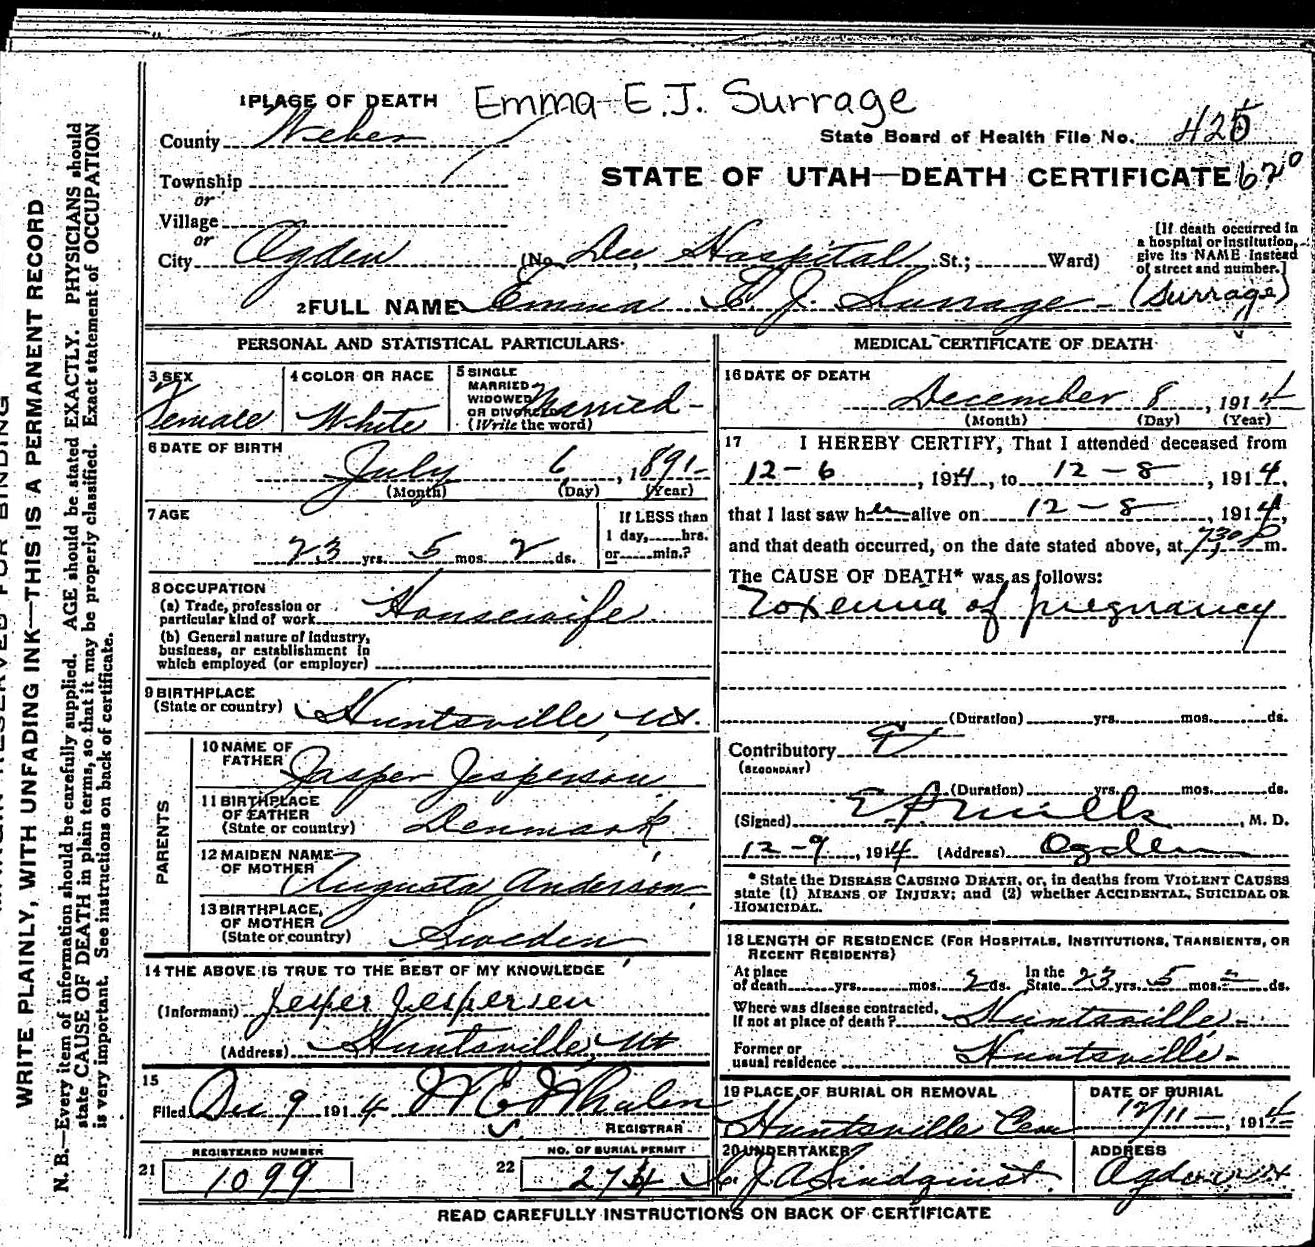 1 PLACE OF DEATH Emma E. J. Surrage
County Weber State Board of Health File No. 425
Township
or
STATE OF UTAH—DEATH CERTIFICATE 620
Village
or
City Ogden (No. Dee Hospital St.; Ward)
[If death occurred in a hospital or institution, give its NAME instead of street and number.]
2 FULL NAME Emma E. J. Surrage (Surrage)
PERSONAL AND STATISTICAL PARTICULARS
3 SEX Female
4 COLOR OR RACE White
5 SINGLE MARRIED WIDOWED OR DIVORCED (Write the word) Married
6 DATE OF BIRTH July 6, 1891
(Month) (Day) (Year)
7 AGE 23 yrs. 5 mos. 2 ds.
If LESS than 1 day, hrs. or min.?
8 OCCUPATION
(a) Trade, profession or particular kind of work Housewife
(b) General nature of industry, business, or establishment in which employed (or employer)
9 BIRTHPLACE (State or country) Huntsville, Ut.
PARENTS
10 NAME OF FATHER Jasper Jesperson
11 BIRTHPLACE OF FATHER (State or country) Denmark
12 MAIDEN NAME OF MOTHER Augusta Anderson
13 BIRTHPLACE OF MOTHER (State or country) Sweden
14 THE ABOVE IS TRUE TO THE BEST OF MY KNOWLEDGE
(Informant) Jesper Jespersen
(Address) Huntsville, Ut
15
Filed Dec 9 1914 Whalen
REGISTRAR
21 REGISTERED NUMBER 1099
22 NO. OF BURIAL PERMIT 274
MEDICAL CERTIFICATE OF DEATH
16 DATE OF DEATH
December 8, 1914
(Month) (Day) (Year)
17 I HEREBY CERTIFY, That I attended deceased from
12-6, 1914, to 12-8, 1914,
that I last saw her alive on 12-8, 1914,
and that death occurred, on the date stated above, at 7:30 P m.
The CAUSE OF DEATH* was as follows:
Toxemia of pregnancy
(Duration) yrs. mos. ds.
Contributory
(SECONDARY)
(Duration) yrs. mos. ds.
(Signed) E. P. Mills, M. D.
12-9, 1914 (Address) Ogden
* State the DISEASE CAUSING DEATH, or, in deaths from VIOLENT CAUSES
state (1) MEANS OF INJURY; and (2) whether ACCIDENTAL, SUICIDAL OR
HOMICIDAL.
18 LENGTH OF RESIDENCE (FOR HOSPITALS, INSTITUTIONS, TRANSIENTS, OR
RECENT RESIDENTS)
At place of death yrs. mos. 2 ds. In the State 23 yrs. 5 mos. 2 ds.
Where was disease contracted, if not at place of death? Huntsville
Former or usual residence Huntsville
19 PLACE OF BURIAL OR REMOVAL Huntsville Cem
DATE OF BURIAL 12/11, 1914
20 UNDERTAKER J A Lindquist
ADDRESS Ogden Ut
READ CAREFULLY INSTRUCTIONS ON BACK OF CERTIFICATE
WRITE PLAINLY, WITH UNFADING INK—THIS IS A PERMANENT RECORD
N. B.—Every item of information should be carefully supplied. AGE should be stated EXACTLY. PHYSICIANS should
state CAUSE OF DEATH in plain terms, so that it may be properly classified. Exact statement of OCCUPATION
is very important. See instructions on back of certificate.